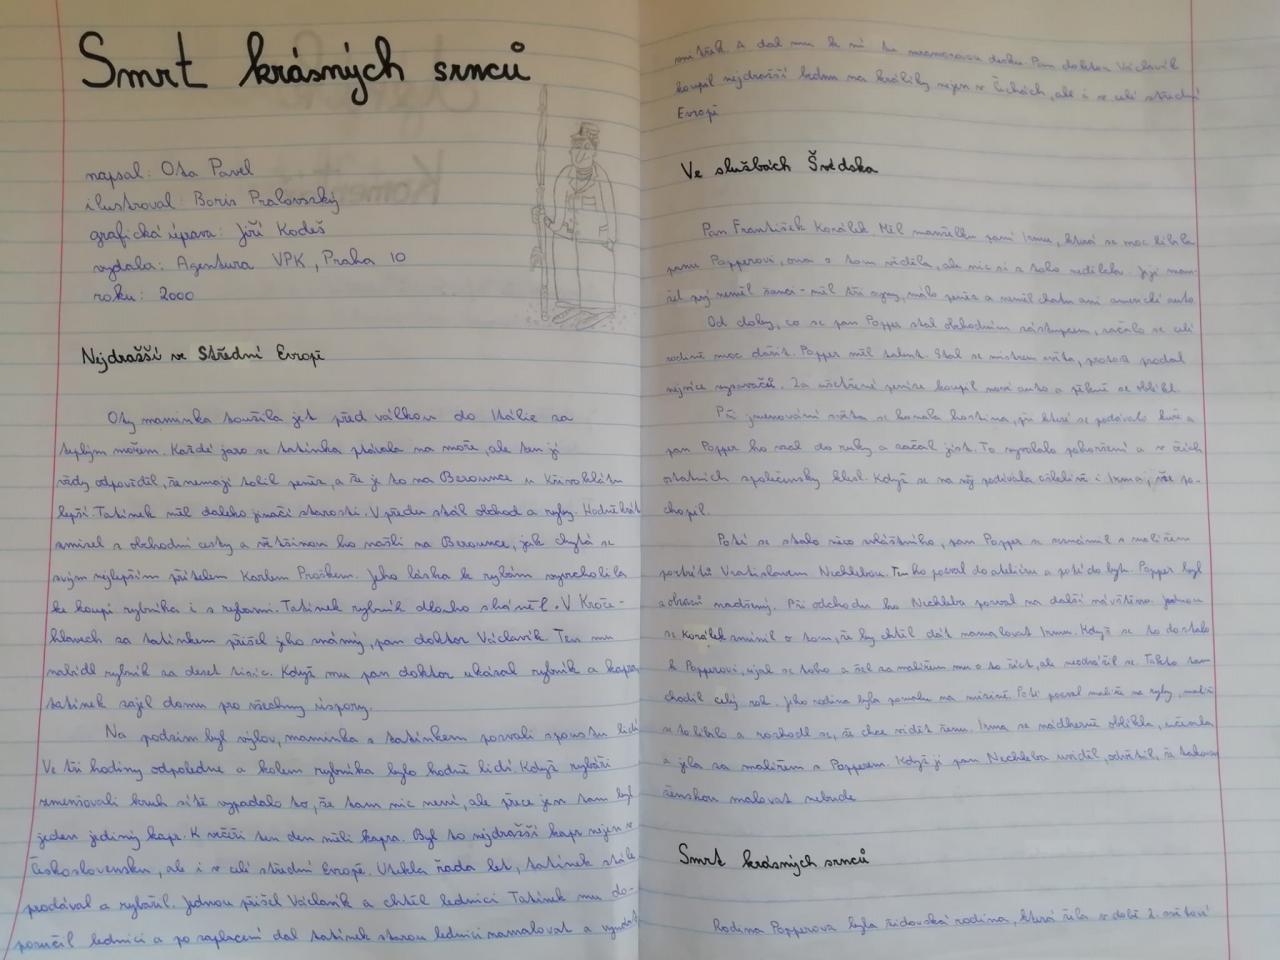 Smrt krásných srnců
napsal: Ota Pavel
ilustroval: Boris Pralovszký
grafická úprava: Jiří Kodeš
vydala: Agentura VPK, Praha 10
roku: 2000
Nejdražší ve Střední Evropě
Oty maminka toužila jet před válkou do Itálie za
teplým mořem. Každé jaro se tatínka ptávala na moře, ale ten jí
vždy odpověděl, že nemají tolik peněz, a že je to na Berounce u Křivoklátu
lepší. Tatínek měl daleko jinačí starosti. V předu stál obchod a ryby. Hodněkrát
zmizel z obchodní cesty a většinou ho našli na Berounce, jak chytá se
svým nejlepším přítelem Karlem Proškem. Jeho láska k rybám vyvrcholila
ke koupi rybníka i s rybami. Tatínek rybník dlouho sháněl. V Kroče-
hlavech za tatínkem přišel jeho známý, pan doktor Václavík. Ten mu
nabídl rybník za deset tisíc. Když mu pan doktor ukázal rybník a kapra,
tatínek zajel domu pro všechny úspory.
Na podzim byl výlov, maminka s tatínkem pozvali spoustu lidí
Ve tři hodiny odpoledne a kolem rybníka bylo hodně lidí. Když rybáři
zmenšovali kruh sítě vypadalo to, že tam nic není, ale přece jen tam byl
jeden jediný kapr. K večeři ten den měli kapra. Byl to nejdražší kapr nejen v
Československu, ale i v celé střední Evropě. Utekla řada let, tatínek stále
prodával a rybařil. Jednou přišel Václavík a chtěl lednici Tatínek mu do-
poručil lednici a po zaplacení dal tatínek starou lednici namalovat a
vnitřek. A dal mu k ní tu mramorovou desku Pan doktor Václavík
koupil nejdražší lednu na králíky nejen v Čechách, ale i v celé střední
Evropě
Ve službách Švédska
Pan František Korálek. Měl manželku paní Irmu, která se moc líbila
panu Popperovi, ona o tom věděla, ale nic si z toho nedělala. Její man-
žel prý neměl šanci - měl tři syny, málo peněz a neměl chatu ani americké auto
Od doby, co se pan Popper stal obchodním zástupcem, začalo se celé
rodině moc dařit. Popper měl talent. Stal se mistrem světa, protože prodal
nejvíce vysavačů. Za ušetřené peníze koupil nové auto a pěkně se oblékl.
Při jmenování světa se konala hostina, při které se podávalo kuře a
pan Popper ho vzal do ruky a začal jíst. To vyvolalo pohoršení a v očích
ostatních společensky klesl. Když se na něj podívala ošklivě i Irma, vše po-
chopil.
Poté se stalo něco zvláštního, pan Popper se seznámil s malířem
portrétů Vratislavem Nechlebou. Ten ho pozval do ateliéru a poté do bytu. Popper byl
z obrazů nadšený. Při odchodu ho Nechleba pozval na další návštěvu. Jednou
se Korálek zmínil o tom, že by chtěl dát namalovat Irmu. Když se to dostalo
k Popperovi, ujal se toho a šel za malířem mu o to říct, ale neodvážil se. Takto tam
chodil celý rok. Jeho rodina byla pomalu na mizině. Poté pozval malíře na ryby, malíři
se to líbilo a rozhodl se, že chce vidět ženu. Irma se nádherně oblékla, učesala
a jela za malířem s Popperem. Když ji pan Nechleba uviděl, odvětil, že takovou
ženskou malovat nebude
Smrt krásných srnců
Rodina Popperova byla židovská rodina, která žila v době 2. světové